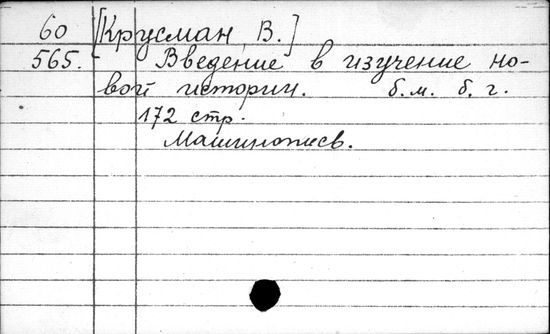 60 [Крусман, В.]
565. Введение в изучение но-
вой истории. б.м. б.г.
172 стр.
Машинопись.